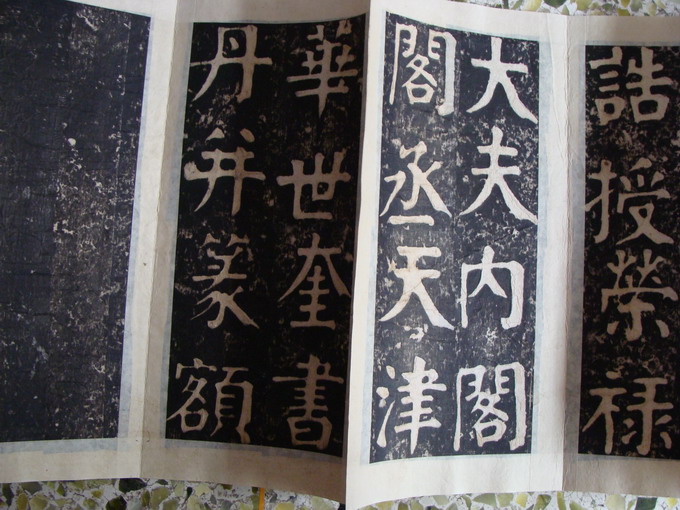 誥授榮祿
大夫內閣
閣丞天津
華世奎書
丹并篆額